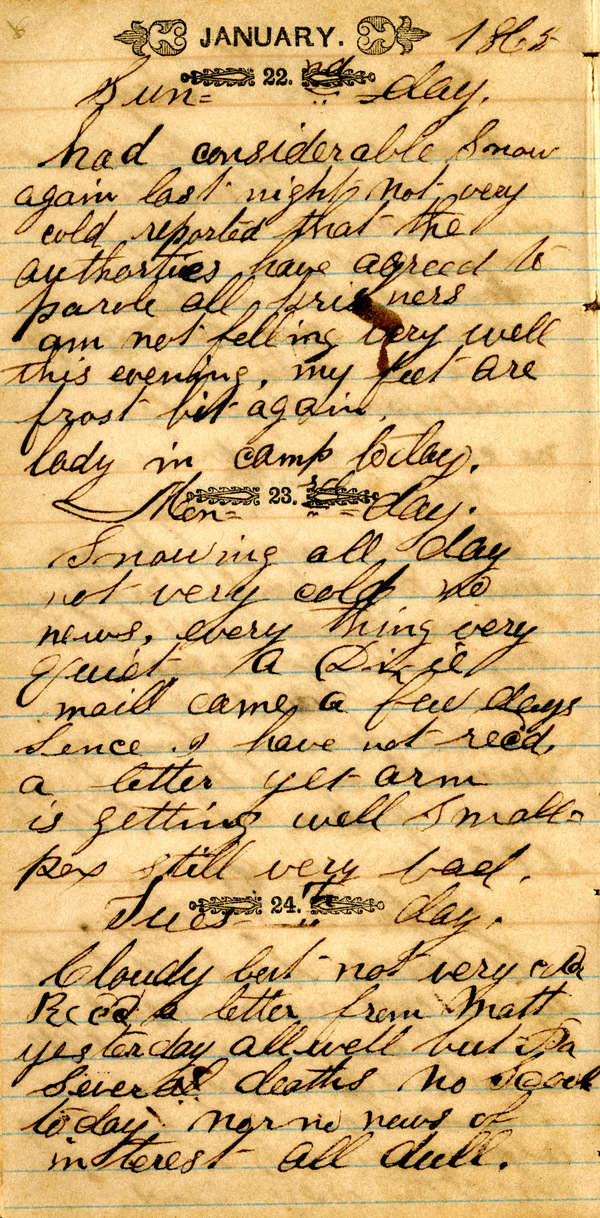 JANUARY. 1865
Sun= 22. nd day.
had considerable Snow
again last night not very
cold reported that the
authorties have agreed to
parole all prisners
am not felling very well
this evening, my feet are
frost bit again.
lady in camp to day.
Mon= 23. rd = day.
Snowing all day
not very cold no
news, every thing very
quiet. a Dixie
maill came a few days
sence. I have not recd,
a letter yet arm
is getting well Small=
pox still very bad.
Tues 24. th day.
Cloudy but not very cold
Recd a letter from Matt
yesterday all well but Pa
Several deaths no
today nor no news of
interest all dull.